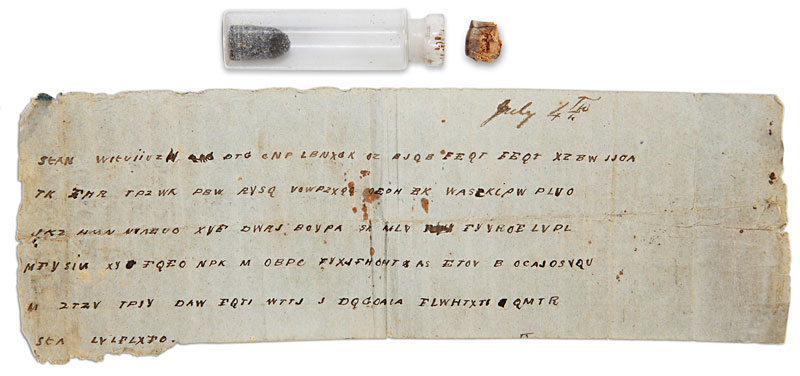 July 4th
SEAN WIEUIIUZH DTG CNP LBNXGK OZ BJQB FEQT FEQT XZBW JJOA
TK FHR TPZWK PBW RYSQ VOWPZXGG OEPH EK WASFKIPW PLVO
JKZ HMN NVAEUD XYE DWRJ BOYPA SK MLV FYYRDE LVPL
MFYSIN XY FQEO NPK M OBPC FYXJFHOHT AS ETOV B OCAJDSVQU
M ZTZV TPJY DAW FQTI WTTJ J DQGOAIA FLWHTXTI QMTR
SEA LVLFLXFO.